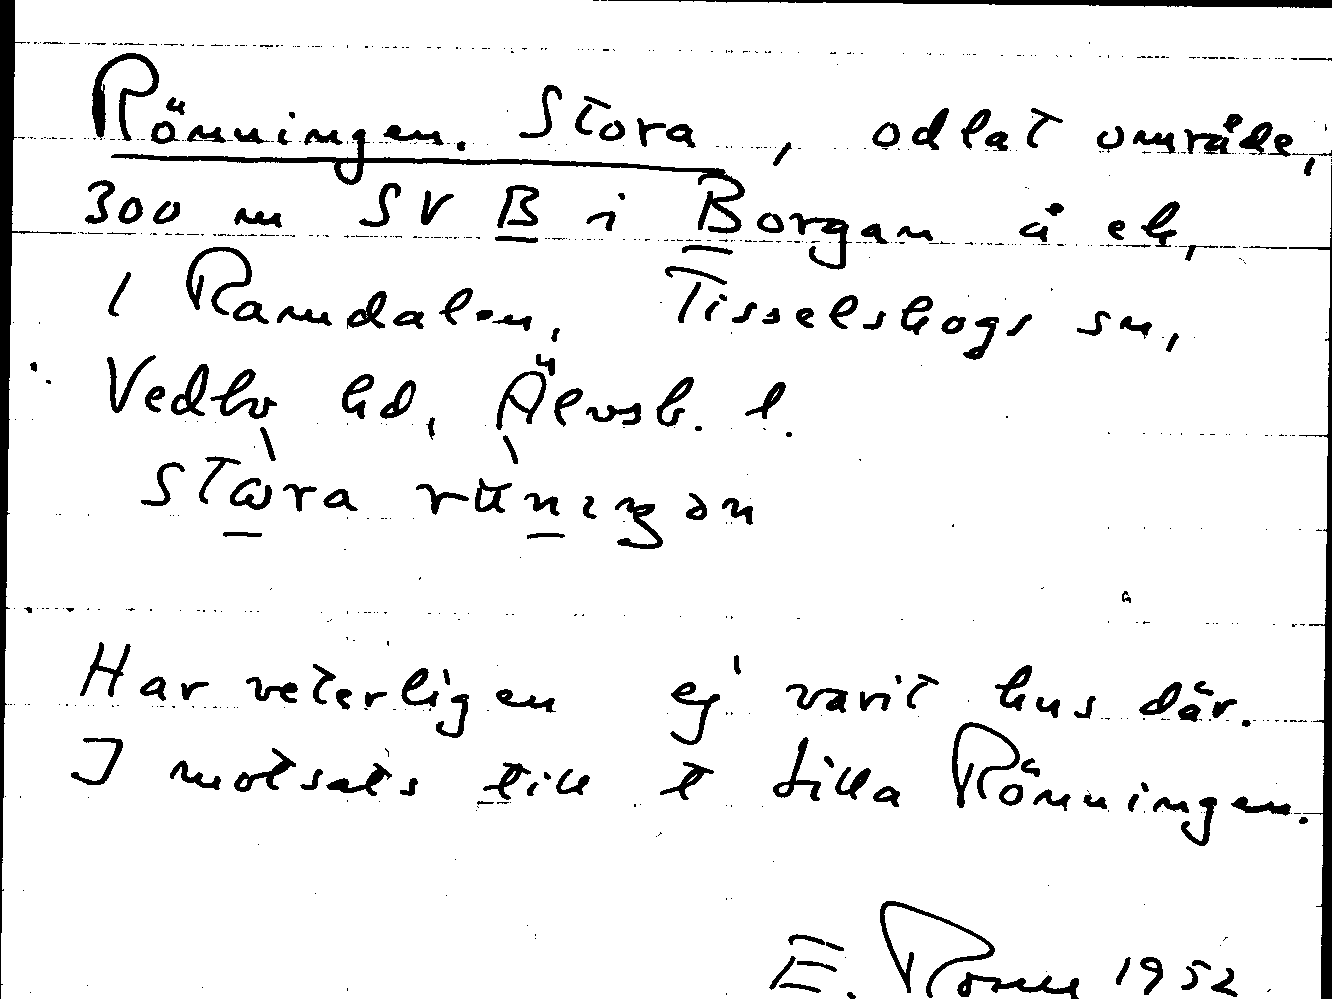 Rönningen. Stora, odlat område,
300 m SV B i Borgan å ek,
1 Ramdalen, Tisselskogs sn,
Vedbo hd, Älvsb. l.
stɷ̀ra rǜnıŋən
Har veterligen ej varit hus där.
I motsats till t Lilla Rönningen.
E. 1952